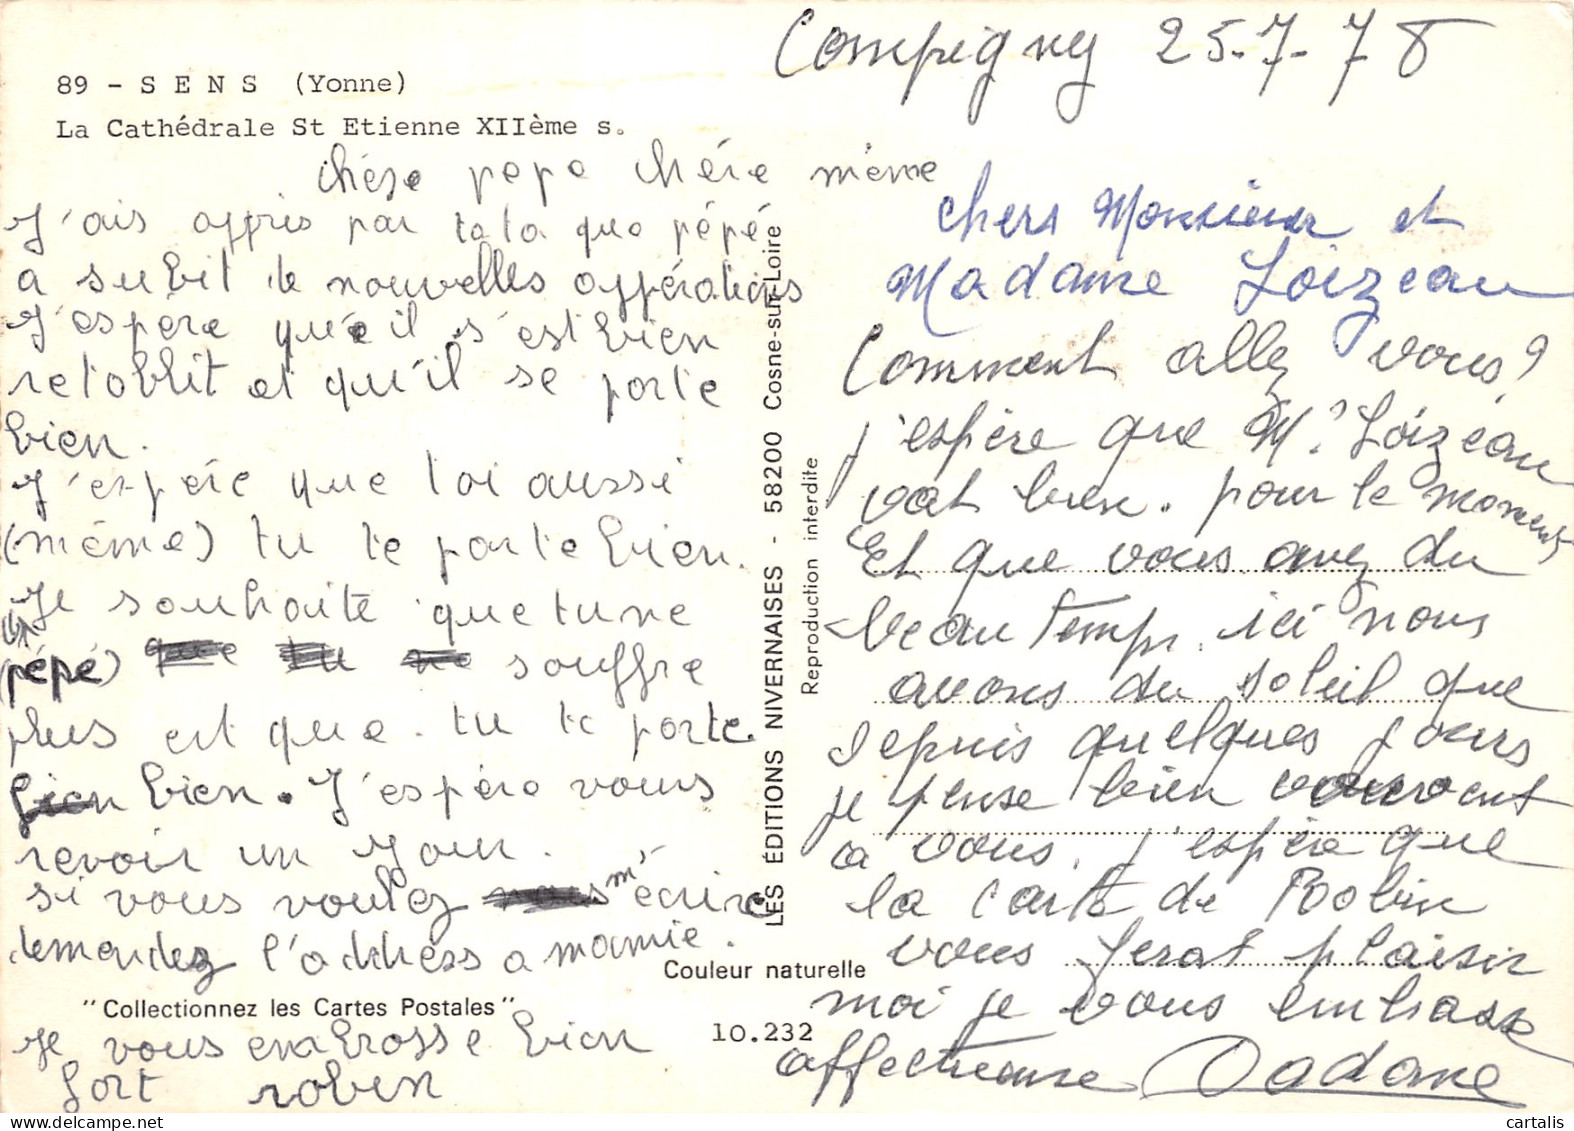 89 - SENS (Yonne)
La Cathédrale St Etienne XIIème s.
chère pepe chère mémé
J'ais appris par tata que pépé
a subit de nouvelles oppérations
J'espère qu'il s'est bien
retablit et qu'il se porte
bien.
J'espére que toi aussi
(mémé) tu te porte bien.
Je souhaite que tu ne
(pépé) que tu ne souffre
plus et que tu te porte
bien bien. J'espére vous
revoir un jour.
si vous voulez m'écrire
demandez l'addréss a mamie.
"Collectionnez les Cartes Postales"
Je vous embrosse bien
fort robin
LES ÉDITIONS NIVERNAISES - 58200 Cosne-sur-Loire
Reproduction interdite
Couleur naturelle
10.232
Compigny 25-7-78
chers Monsieur et
Madame Loizeau
Comment allez vous?
j'espère que Mr Loizeau
vat bien. pour le moment
Et que vous avez du
beau temps. ici nous
avons du soleil que
depuis quelques jours
je pense bien souvent
a vous. j'espère que
la carte de Robin
vous ferat plaisir
moi je vous embrasse
affectueuse Dadane
cartalis